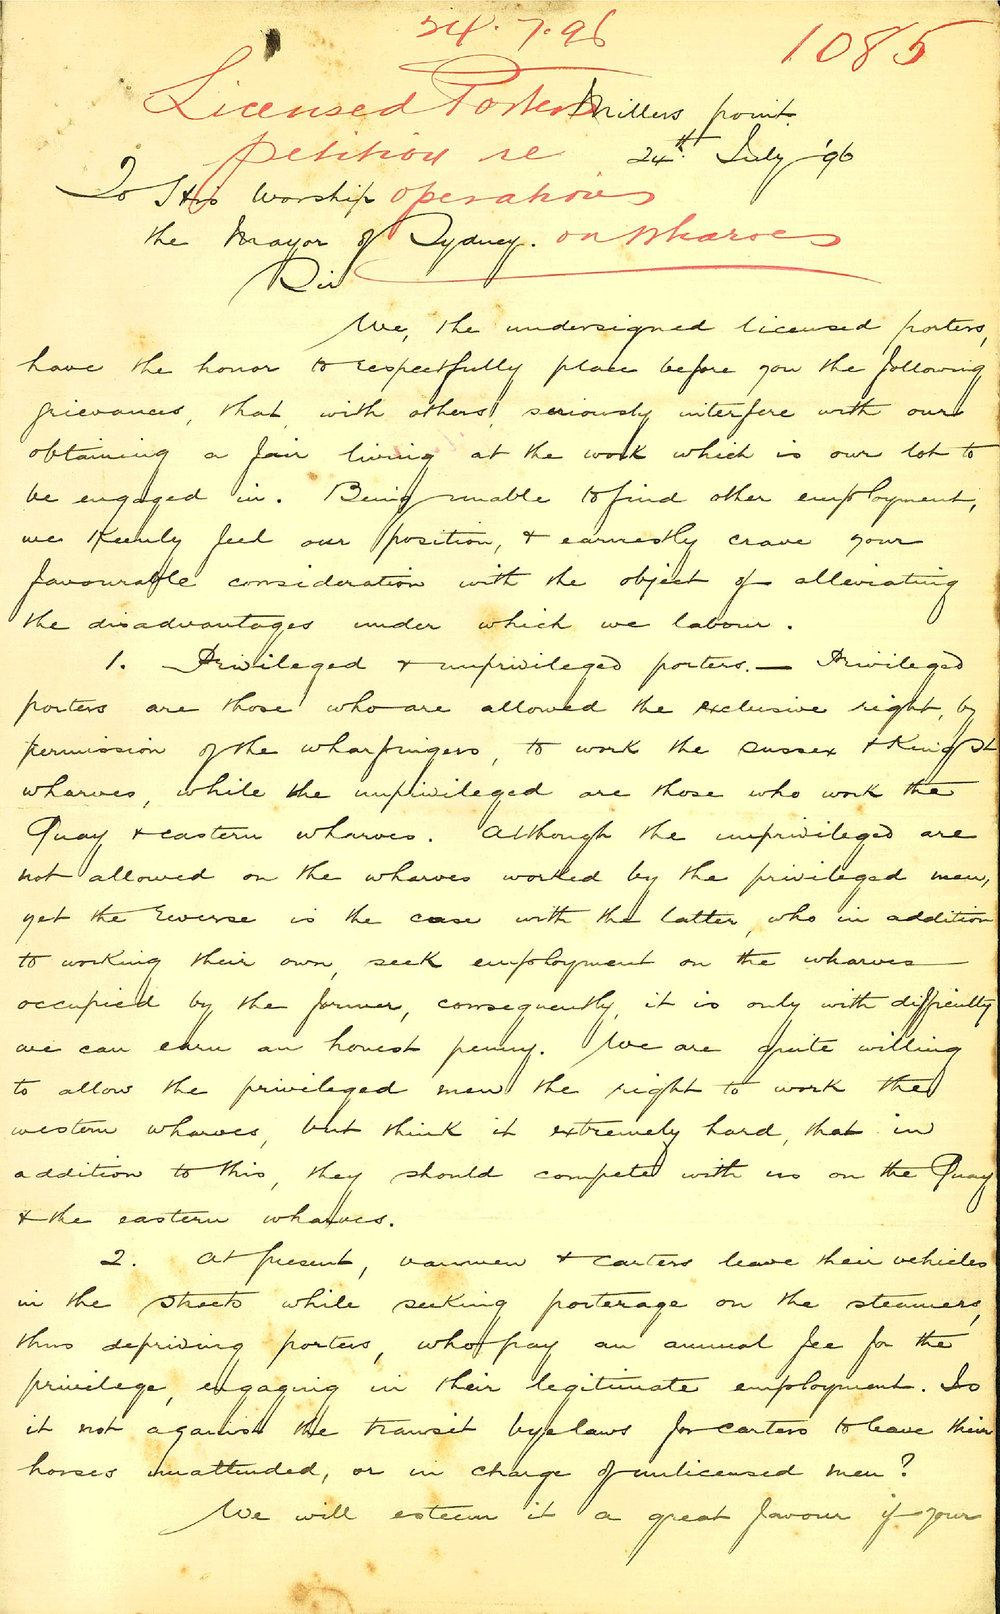 24.7.96
1085
Licensed Porters
petition re
operations
on wharves
Millers point.
24th. July '96
To His Worship
the Mayor of Sydney.
Sir
We, the undersigned licensed porters,
have the honor to respectfully place before you the following
grievances, that, with others, seriously interfere with our
obtaining a fair living at the work which is our lot to
be engaged in. Being unable to find other employment,
we keenly feel our position, & earnestly crave your
favourable consideration with the object of alleviating
the disadvantages under which we labour.
1. Privileged & unprivileged porters. — Privileged
porters are those who are allowed the exclusive right, by
permission of the wharfingers, to work the Sussex & King St
wharves, while the unprivileged are those who work the
Quay & eastern wharves. Although the unprivileged are
not allowed on the wharves worked by the privileged men,
yet the reverse is the case with the latter, who in addition
to working their own, seek employment on the wharves
occupied by the former, consequently, it is only with difficulty
we can earn an honest penny. We are quite willing
to allow the privileged men the right to work the
western wharves, but think it extremely hard, that in
addition to this, they should compete with us on the Quay
& the eastern wharves.
2. At present, vanmen & carters leave their vehicles
in the streets while seeking porterage on the steamers,
thus depriving porters, who pay an annual fee for the
privilege, engaging in their legitimate employment. Is
it not against the transit bye laws for carters to leave their
horses unattended, or in charge of unlicensed men?
We will esteem it a great favour if your